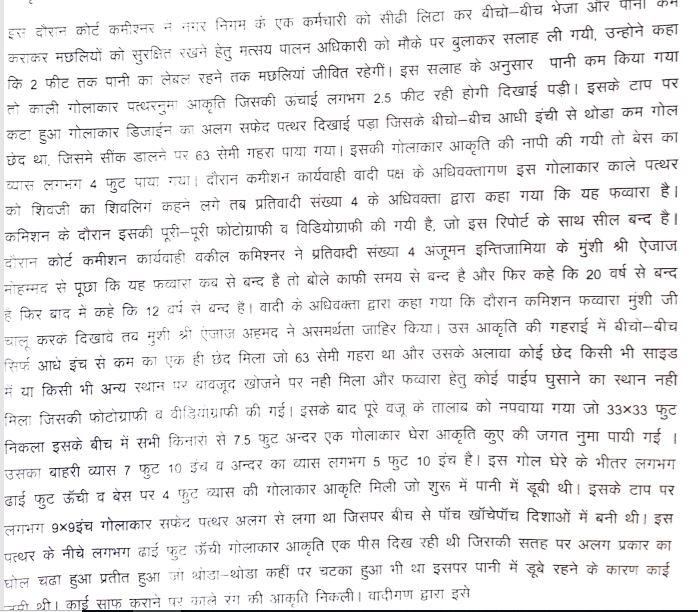 इस दौरान कोर्ट कमीश्नर ने नगर निगम के एक कर्मचारी को सीढी लिटा कर बीचो–बीच भेजा और पानी कम
कराकर मछलियों को सुरक्षित रखने हेतु मत्सय पालन अधिकारी को मौके पर बुलाकर सलाह ली गयी, उन्होने कहा
कि 2 फीट तक पानी का लेबल रहने तक मछलियां जीवित रहेगीं। इस सलाह के अनुसार पानी कम किया गया
तो काली गोलाकार पत्थरनुमा आकृति जिसकी ऊचाई लगभग 2.5 फीट रही होगी दिखाई पड़ी। इसके टाप पर
कटा हुआ गोलाकार डिजाईन का अलग सफेद पत्थर दिखाई पड़ा जिसके बीचो–बीच आधी इंची से थोडा कम गोल
छेद था, जिसमे सींक डालने पर 63 सेमी गहरा पाया गया। इसकी गोलाकार आकृति की नापी की गयी तो बेस का
व्यास लगभग 4 फुट पाया गया। दौरान कमीशन कार्यवाही वादी पक्ष के अधिवक्तागण इस गोलाकार काले पत्थर
को शिवजी का शिवलिगं कहने लगे तब प्रतिवादी संख्या 4 के अधिवक्ता द्वारा कहा गया कि यह फव्वारा है।
कमिशन के दौरान इसकी पूरी–पूरी फोटोग्राफी व विडियोग्राफी की गयी है, जो इस रिपोर्ट के साथ सील बन्द है।
दौरान कोर्ट कमीशन कार्यवाही वकील कमिश्नर ने प्रतिवादी संख्या 4 अंजूमन इन्तिजामिया के मुंशी श्री ऐजाज
मोहम्मद से पूछा कि यह फव्वारा कब से बन्द है तो बोले काफी समय से बन्द है और फिर कहे कि 20 वर्ष से बन्द
है फिर बाद में कहे कि 12 वर्ष से बन्द है। वादी के अधिवक्ता द्वारा कहा गया कि दौरान कमिशन फव्वारा मुंशी जी
चालू करके दिखावे तब मुंशी श्री एंजाज अहमद ने असमर्थता जाहिर किया। उस आकृति की गहराई में बीचो–बीच
सिर्फ आधे इंच से कम का एक ही छेद मिला जो 63 सेमी गहरा था और उसके अलावा कोई छेद किसी भी साइड
में या किसी भी अन्य स्थान पर बावजूद खोजने पर नही मिला और फव्वारा हेतु कोई पाईप घुसाने का स्थान नही
मिला जिसकी फोटोग्राफी व वीडियोग्राफी की गई। इसके बाद पूरे वजू के तालाब को नपवाया गया जो 33×33 फुट
निकला इसके बीच में सभी किनारो से 7.5 फुट अन्दर एक गोलाकार घेरा आकृति कुए की जगत नुमा पायी गई ।
उसका बाहरी व्यास 7 फुट 10 इंच व अन्दर का व्यास लगभग 5 फुट 10 इंच है। इस गोल घेरे के भीतर लगभग
ढाई फुट ऊँची व बेस पर 4 फुट व्यास की गोलाकार आकृति मिली जो शुरू में पानी में डूबी थी। इसके टाप पर
लगभग 9×9इंच गोलाकार सफेद पत्थर अलग से लगा था जिसपर बीच से पाँच खाँचेपाँच दिशाओं में बनी थी। इस
पत्थर के नीचे लगभग ढाई फुट ऊँची गोलाकार आकृति एक पीस दिख रही थी जिसकी सतह पर अलग प्रकार का
घोल चढा हुआ प्रतीत हुआ जो थोडा–थोडा कहीं पर चटका हुआ भी था इसपर पानी में डूबे रहने के कारण काई
थी। काई साफ कराने पर काले रंग की आकृति निकली। वादीगण द्वारा इसे